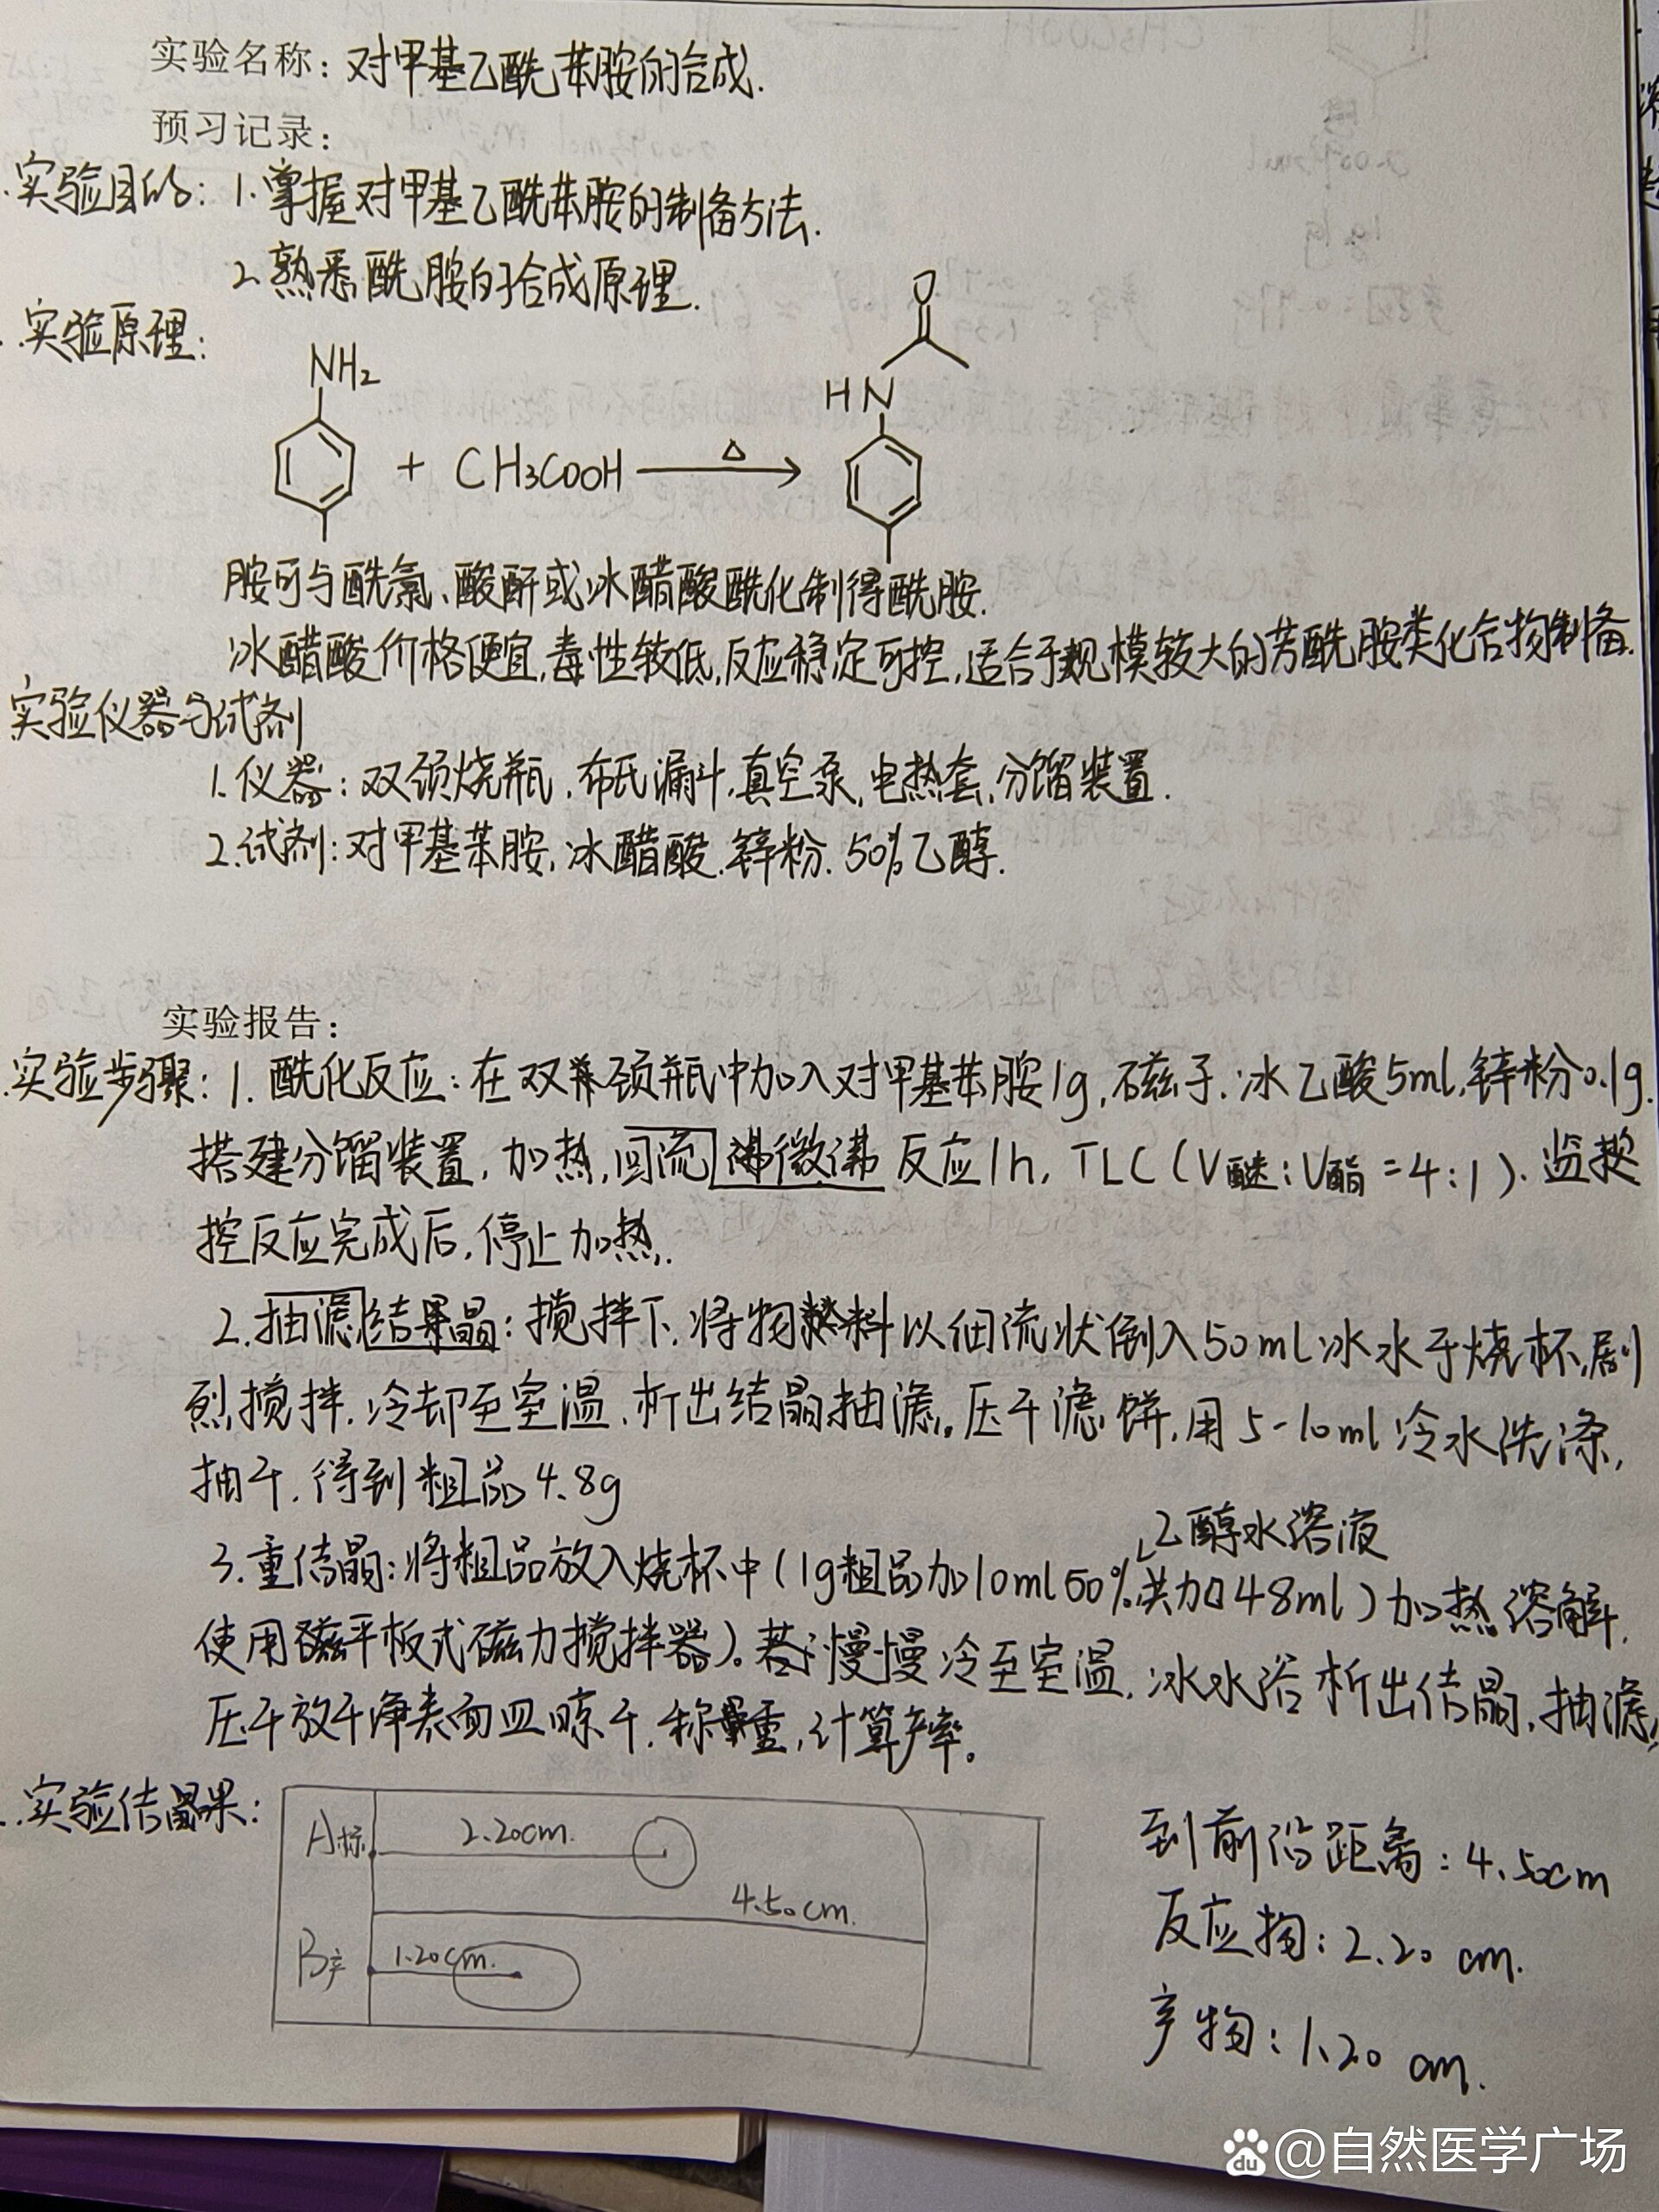 实验名称：对甲基乙酰苯胺的合成.
预习记录：
.实验目的：1.掌握对甲基乙酰苯胺的制备方法.
2.熟悉酰胺的合成原理.
.实验原理：
O
NH₂
HN
+ CH₃COOH △
胺可与酰氯、酸酐或冰醋酸酰化制得酰胺.
冰醋酸价格便宜,毒性较低,反应稳定可控,适合于规模较大的芳酰胺类化合物制备.
实验仪器与试剂
1.仪器：双颈烧瓶,布氏漏斗,真空泵,电热套,分馏装置.
2.试剂：对甲基苯胺,冰醋酸.锌粉.50%乙醇.
实验报告：
.实验步骤：1.酰化反应：在双颈瓶中加入对甲基苯胺1g,磁子.冰乙酸5ml,锌粉0.1g.
搭建分馏装置,加热,回流微沸反应1h,TLC(V醚:V酯=4:1).监
控反应完成后,停止加热.
2.抽滤结晶：搅拌下,将物料以细流状倒入50ml冰水于烧杯,剧
烈搅拌.冷却至室温,析出结晶抽滤.压干滤饼,用5-10ml冷水洗涤,
抽干.得到粗品4.8g
乙醇水溶液
3.重结晶：将粗品放入烧杯中(1g粗品加10ml50%共加48ml)加热溶解.
使用平板式磁力搅拌器)。慢慢冷至室温,冰水浴析出结晶,抽滤,
压干放干净表面皿晾干.称重,计算产率。
.实验结果：
A标 2.20cm.
4.50cm.
B产 1.20cm.
到前沿距离：4.50cm
反应物：2.20 cm.
产物：1.20 cm.
du @自然医学广场